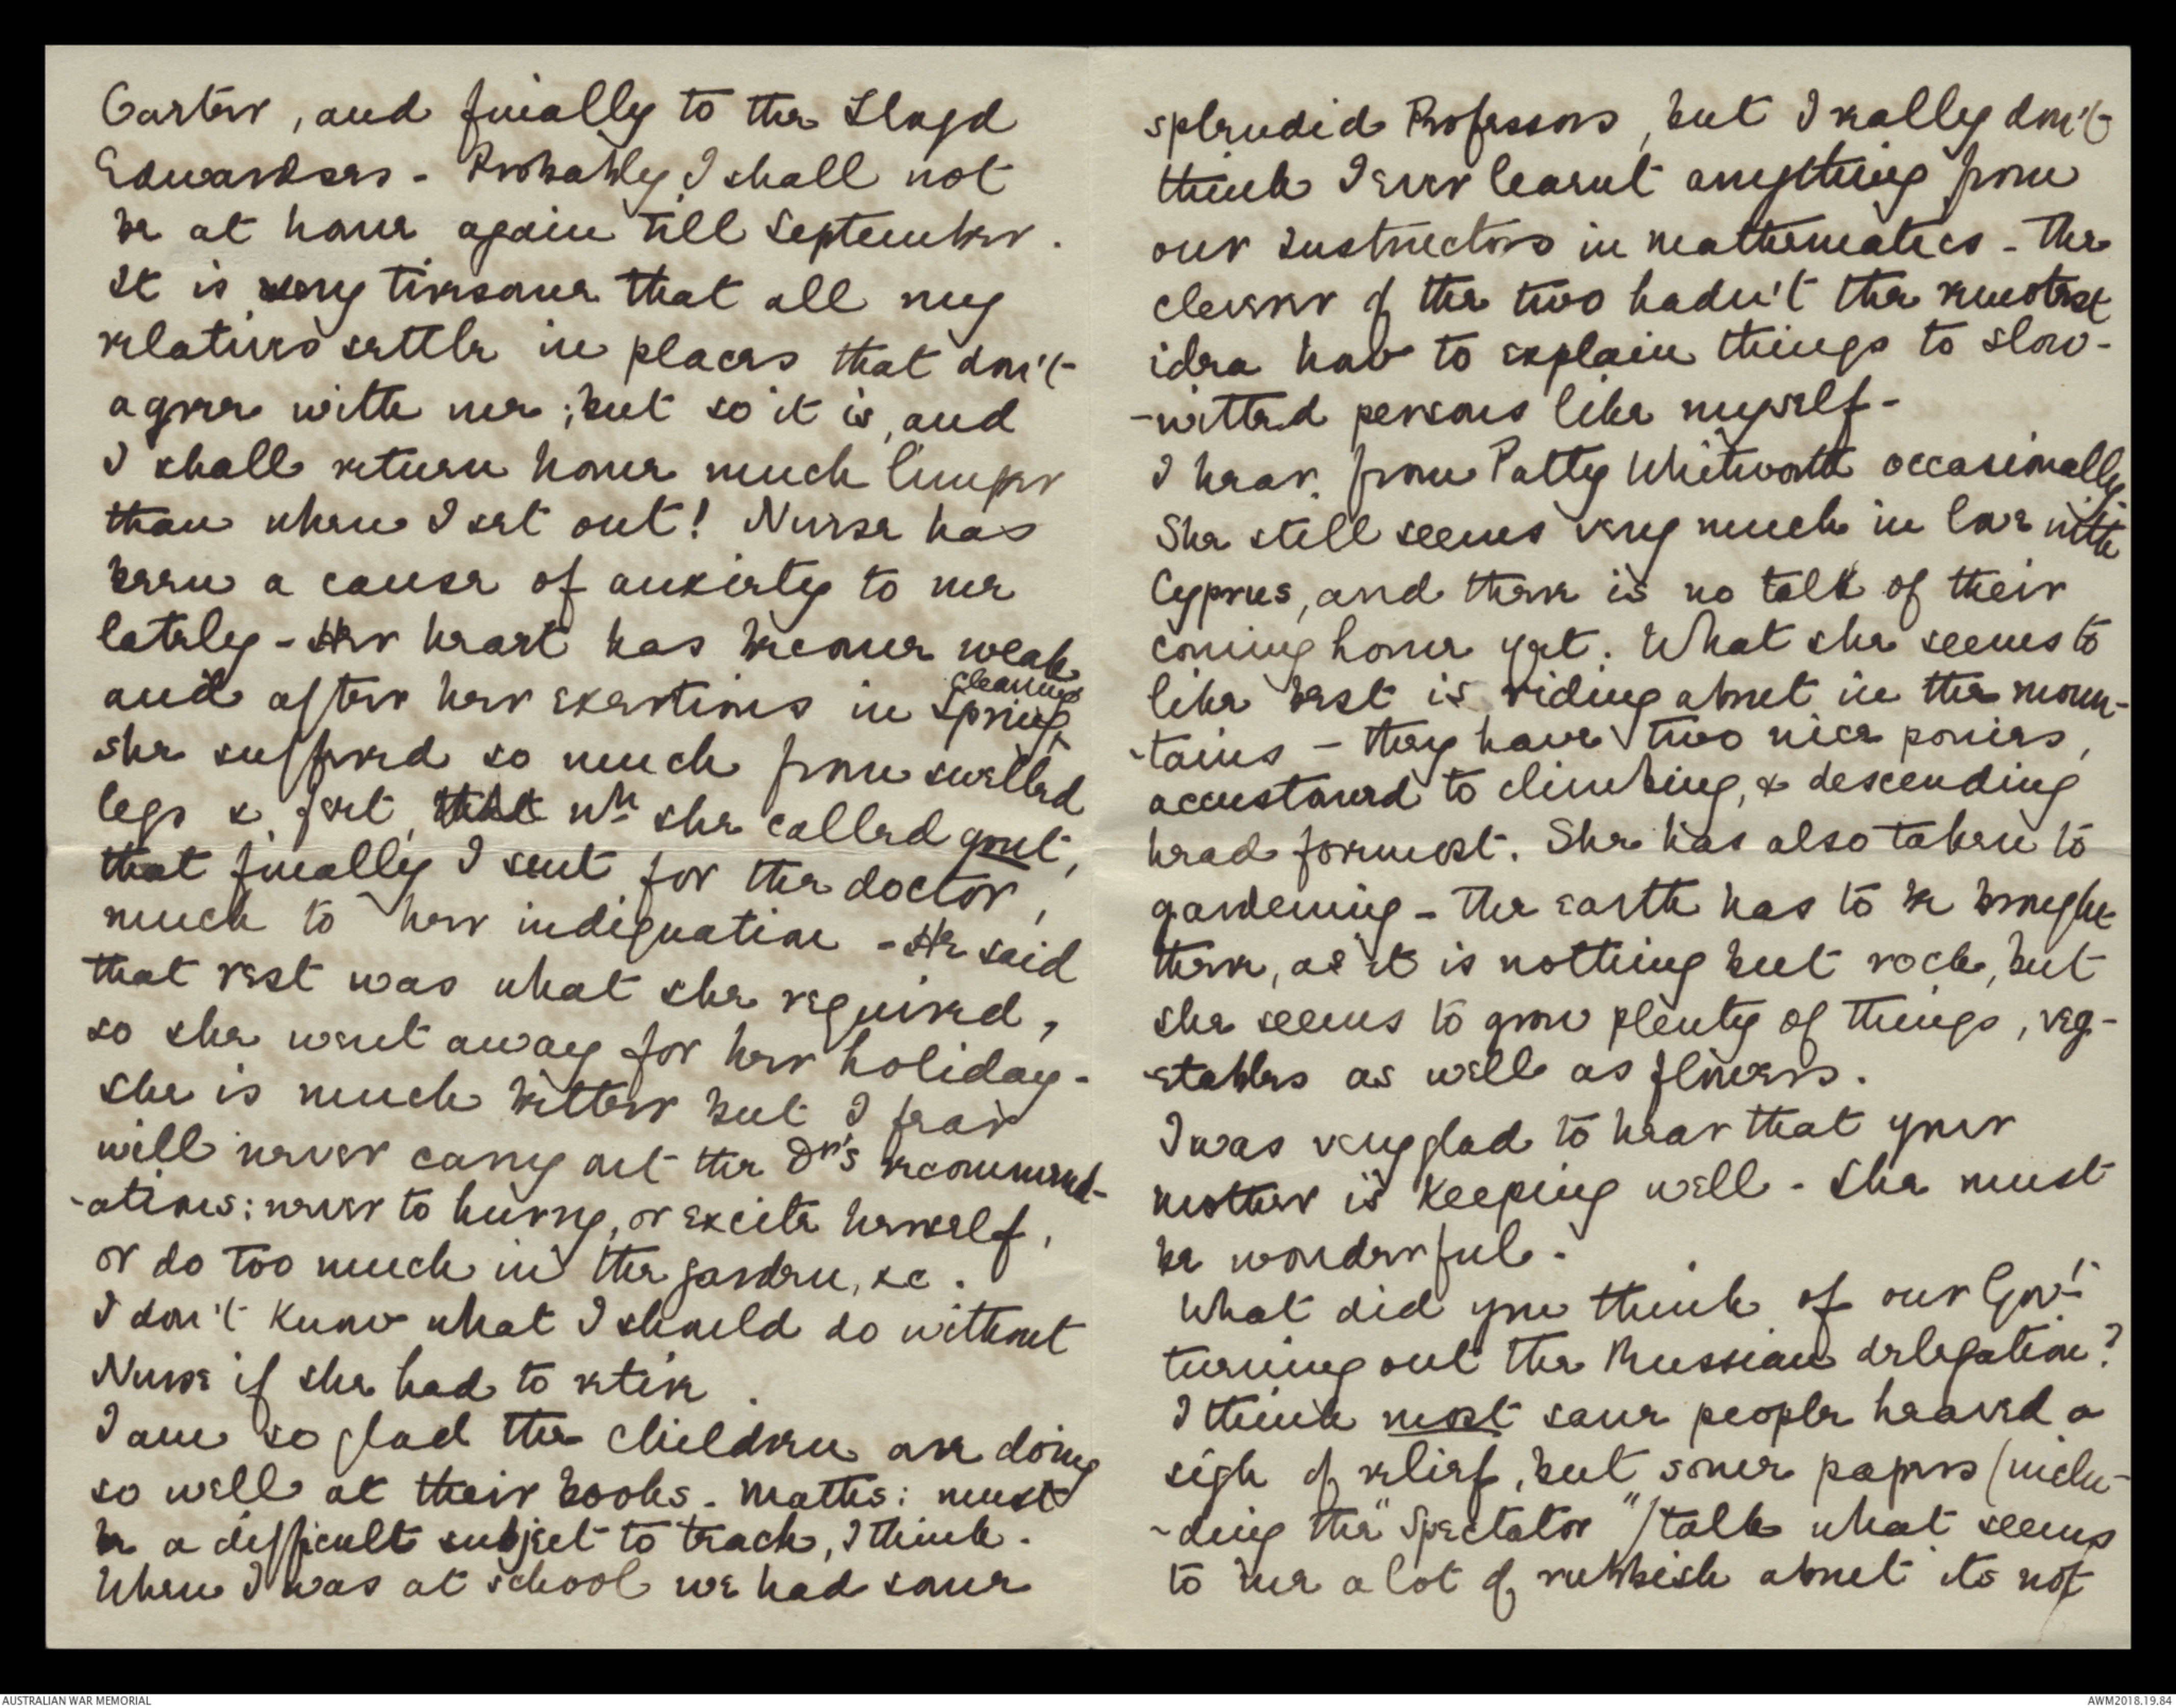 Carter, and finally to the Lloyd
Edwardses - Probably I shall not
be at home again till September.
It is very tiresome that all my
relatives settle in places that don't
agree with me; but so it is, and
I shall return home much limper
than when I set out! Nurse has
been a cause of anxiety to me
lately - Her heart has become weak
and after her exertions in Spring cleaning
she suffered so much from swelled
legs & feet, wh she called gout,
that finally I sent for the doctor,
much to her indignation - He said
that rest was what she required,
so she went away for her holiday -
She is much better but I fear
will never carry out the Dr's recommend-
-ations: never to hurry, or excite herself,
or do too much in the garden, &c.
I don't know what I should do without
Nurse if she had to retire.
I am so glad the children are doing
so well at their books. Maths: must
be a difficult subject to teach, I think.
When I was at school we had some
splendid Professors, but I really don't
think I ever learnt anything from
our instructors in mathematics - The
cleverer of the two hadn't the remotest
idea how to explain things to slow-
-witted persons like myself -
I hear from Patty Whitworth occasionally.
She still seems very much in love with
Cyprus, and there is no talk of their
coming home yet. What she seems to
like best is riding about in the moun-
-tains - they have two nice ponies,
accustomed to climbing, & descending
head foremost. She has also taken to
gardening - The earth has to be brought
there, as it is nothing but rock, but
she seems to grow plenty of things, veg-
-etables as well as flowers.
I was very glad to hear that your
mother is keeping well - She must
be wonderful.
What did you think of our Gov!
turning out the Russian delegation?
I think most sane people heaved a
sigh of relief, but some papers (inclu-
-ding the "Spectator") talk what seems
to me a lot of rubbish about its not
AUSTRALIAN WAR MEMORIAL
AWM2018.19.84